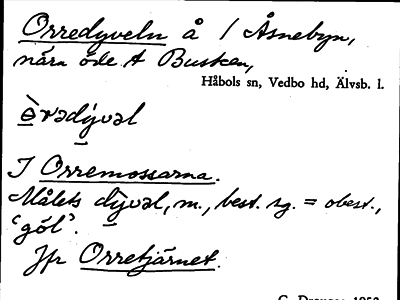 Orredyveln å / Åsnebyn,
nära öde t Busken,
Håbols sn, Vedbo hd, Älvsb. l.
I Orremossarna.
Målets dyvəl, m., best. sg. = obest.,
'göl'.
Jfr Orretjärnet.